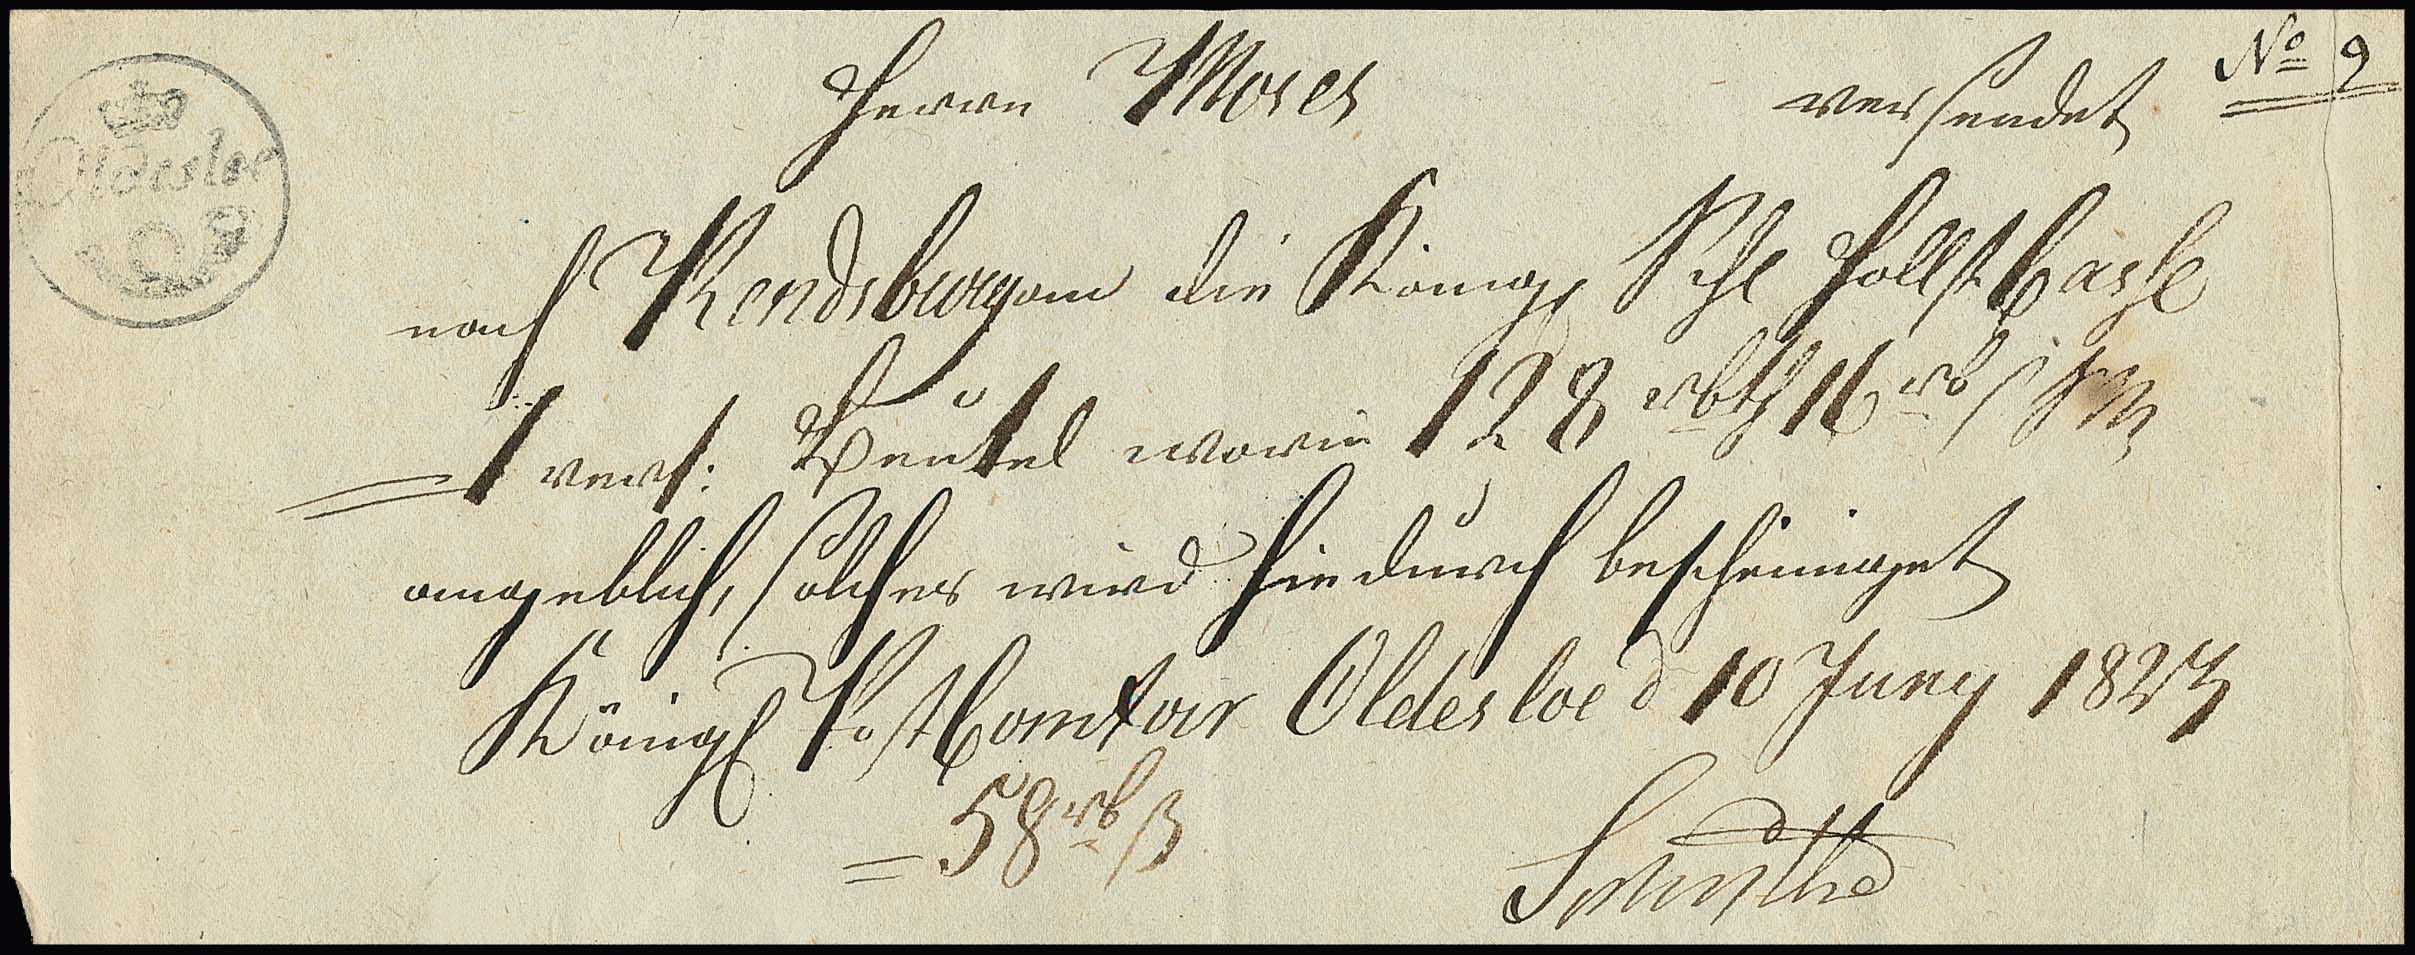 Oldesloe
No 9
Herrn Moses versendet
nach Rendsburg an die Königl Schl Hollst Casse
1 vers: Beutel worin 128 rbth 16 rbß SM
angeblich, solches wird hiedurch bescheiniget
Königl Post Comtoir Oldesloe d 10 Juny 1823
58 rbß